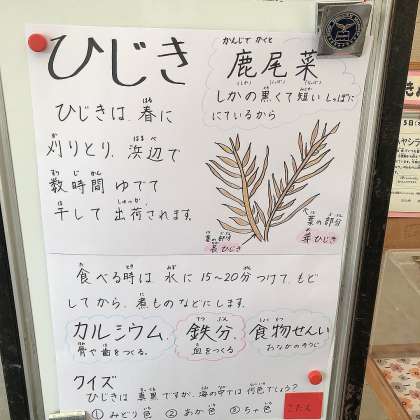 ひじき
かんじで かくと
鹿尾菜
しかの黒くて短いしっぽに
にているから
ひじきは、春に
刈りとり、浜辺で
数時間 ゆでて
干して 出荷されます。
葉の部分
芽ひじき
茎の部分
長ひじき
食べる時は 水に 15~20分 つけて、もど
してから、煮ものなどにします。
カルシウム
骨や歯をつくる。
鉄分
血をつくる
食物せんい
おなかのそうじ
クイズ
ひじきは 真黒ですが、海の中では 何色でしょう?
①みどり色 ②あか色 ③ちゃ色
こたえ